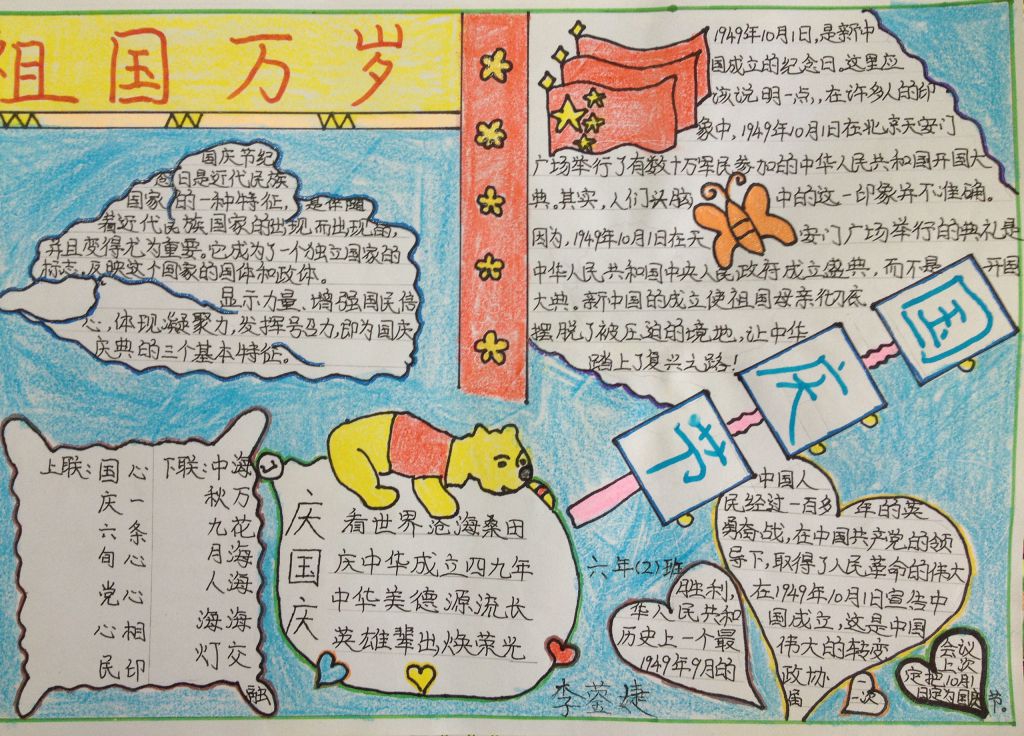 祖国万岁
国庆节纪
念日是近代民族
国家的一种特征,是伴随
着近代民族国家的出现而出现的,
并且变得尤为重要。它成为了一个独立国家的
标志,反映这个国家的国体和政体。
显示力量、增强国民信
心,体现凝聚力,发挥号召力,即为国庆
庆典的三个基本特征。
1949年10月1日,是新中
国成立的纪念日。这里应
该说明一点,,在许多人的印
象中,1949年10月1日在北京天安门
广场举行了有数十万军民参加的中华人民共和国开国大
典。其实,人们头脑中的这一印象并不准确。
因为,1949年10月1日在天安门广场举行的典礼是
中华人民,共和国中央人民政府成立盛典,而不是开国
大典。新中国的成立使祖国母亲彻底
摆脱了被压迫的境地,让中华
踏上了复兴之路!
国庆节
上联:国庆六旬党心民
心一条心心相印
下联:中秋九月人海灯
海万花海海海交
庆国庆
看世界沧海桑田
庆中华成立四九年
中华美德源流长
英雄辈出焕荣光
六年(2)班
李莹婕
中国人
民经过一百多年的英
勇奋战,在中国共产党的领
导下,取得了人民革命的伟大
胜利,在1949年10月1日宣告中
华人民共和国成立,这是中国
历史上一个最伟大的转变
1949年9月的政协
届一次
会议
上次
定把10月1
日定为国庆节。